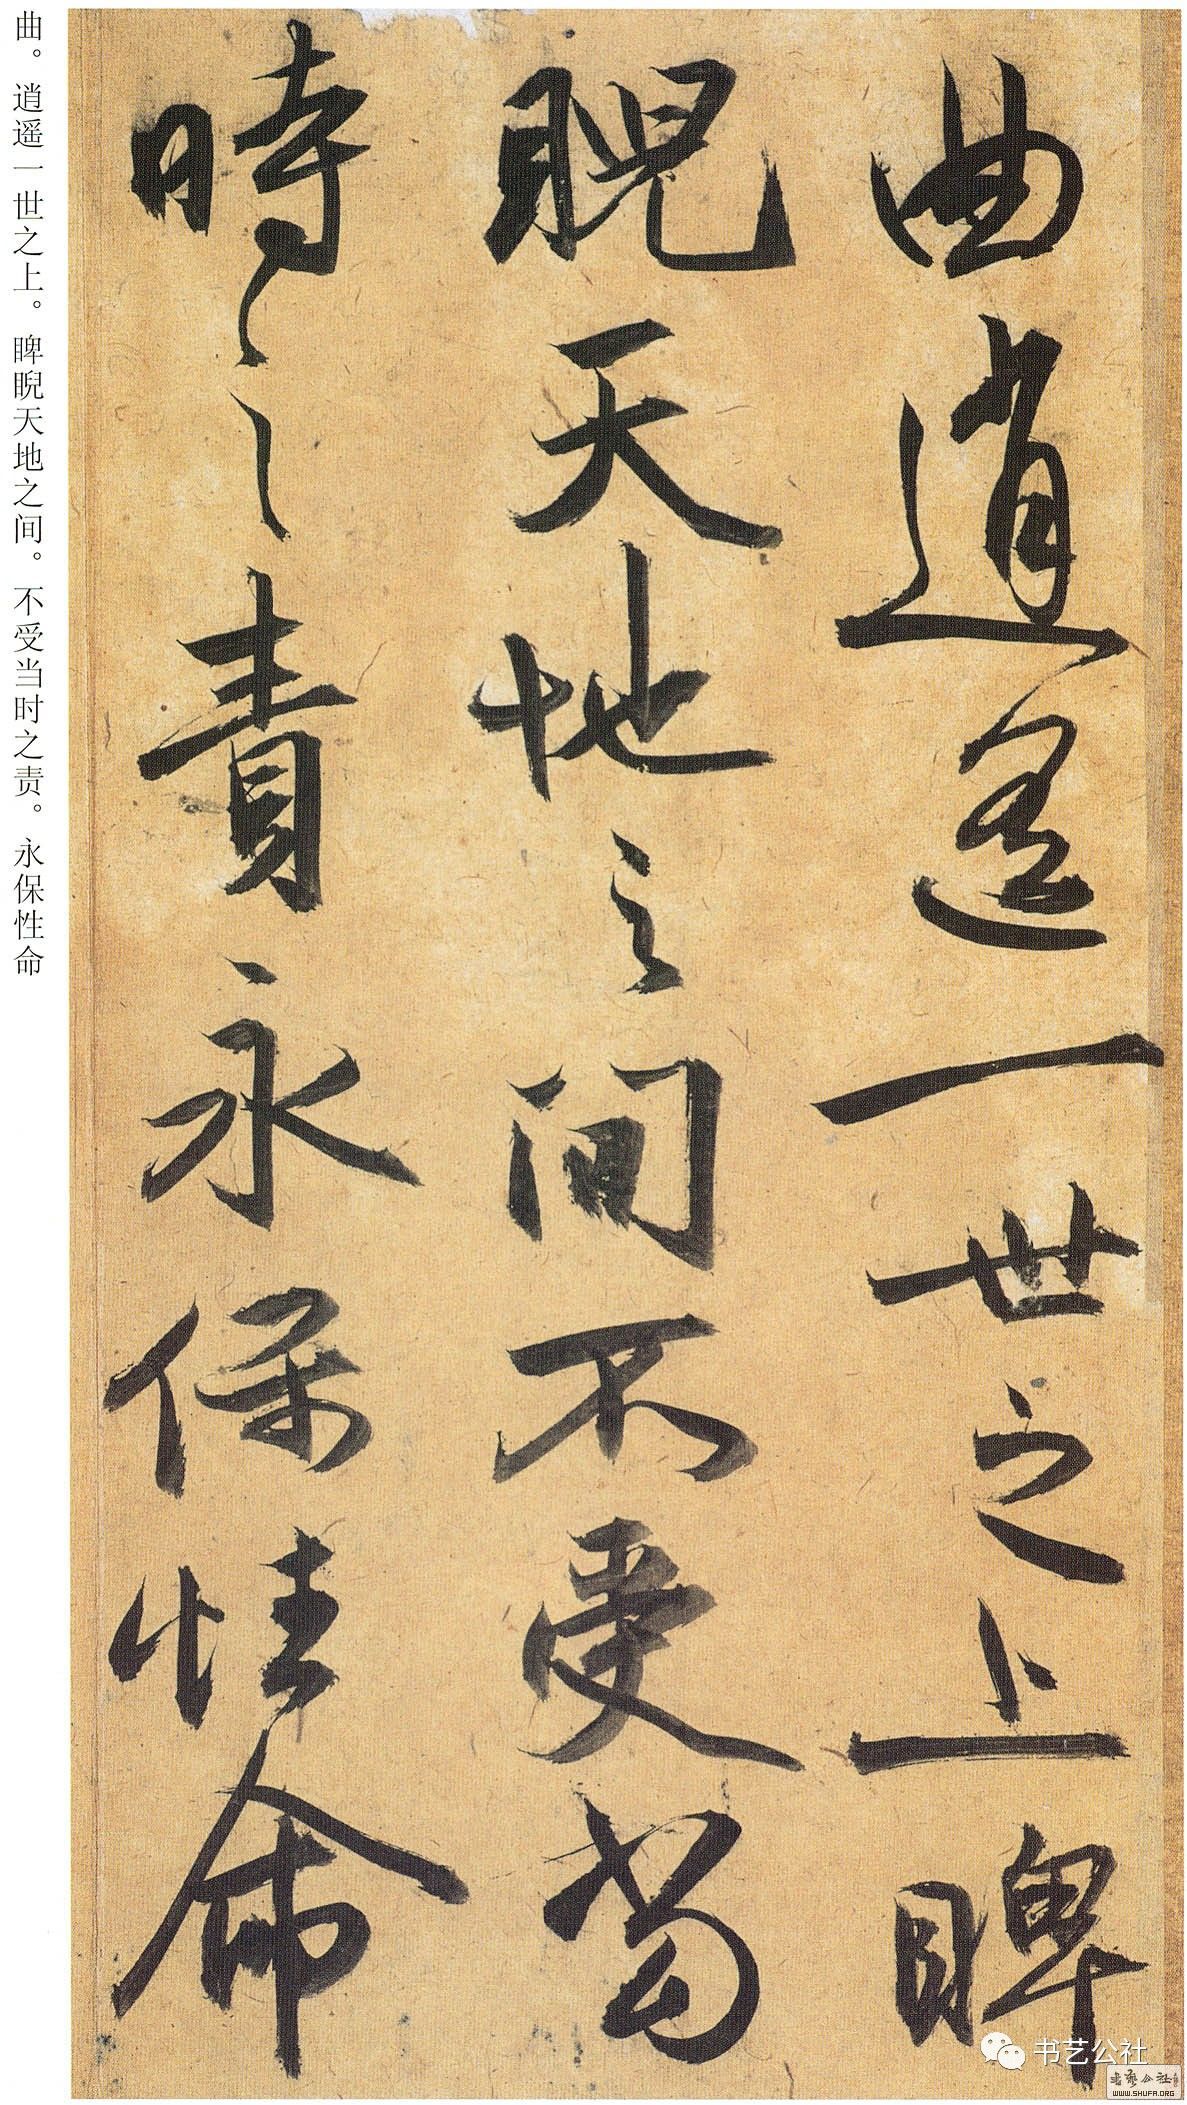 曲逍遥一世之上睥
睨天地之间不受当
時之責永保性命
曲。逍遥一世之上。睥睨天地之间。不受当时之责。永保性命
书艺公社
书艺公社
WWW.SHUFA.ORG